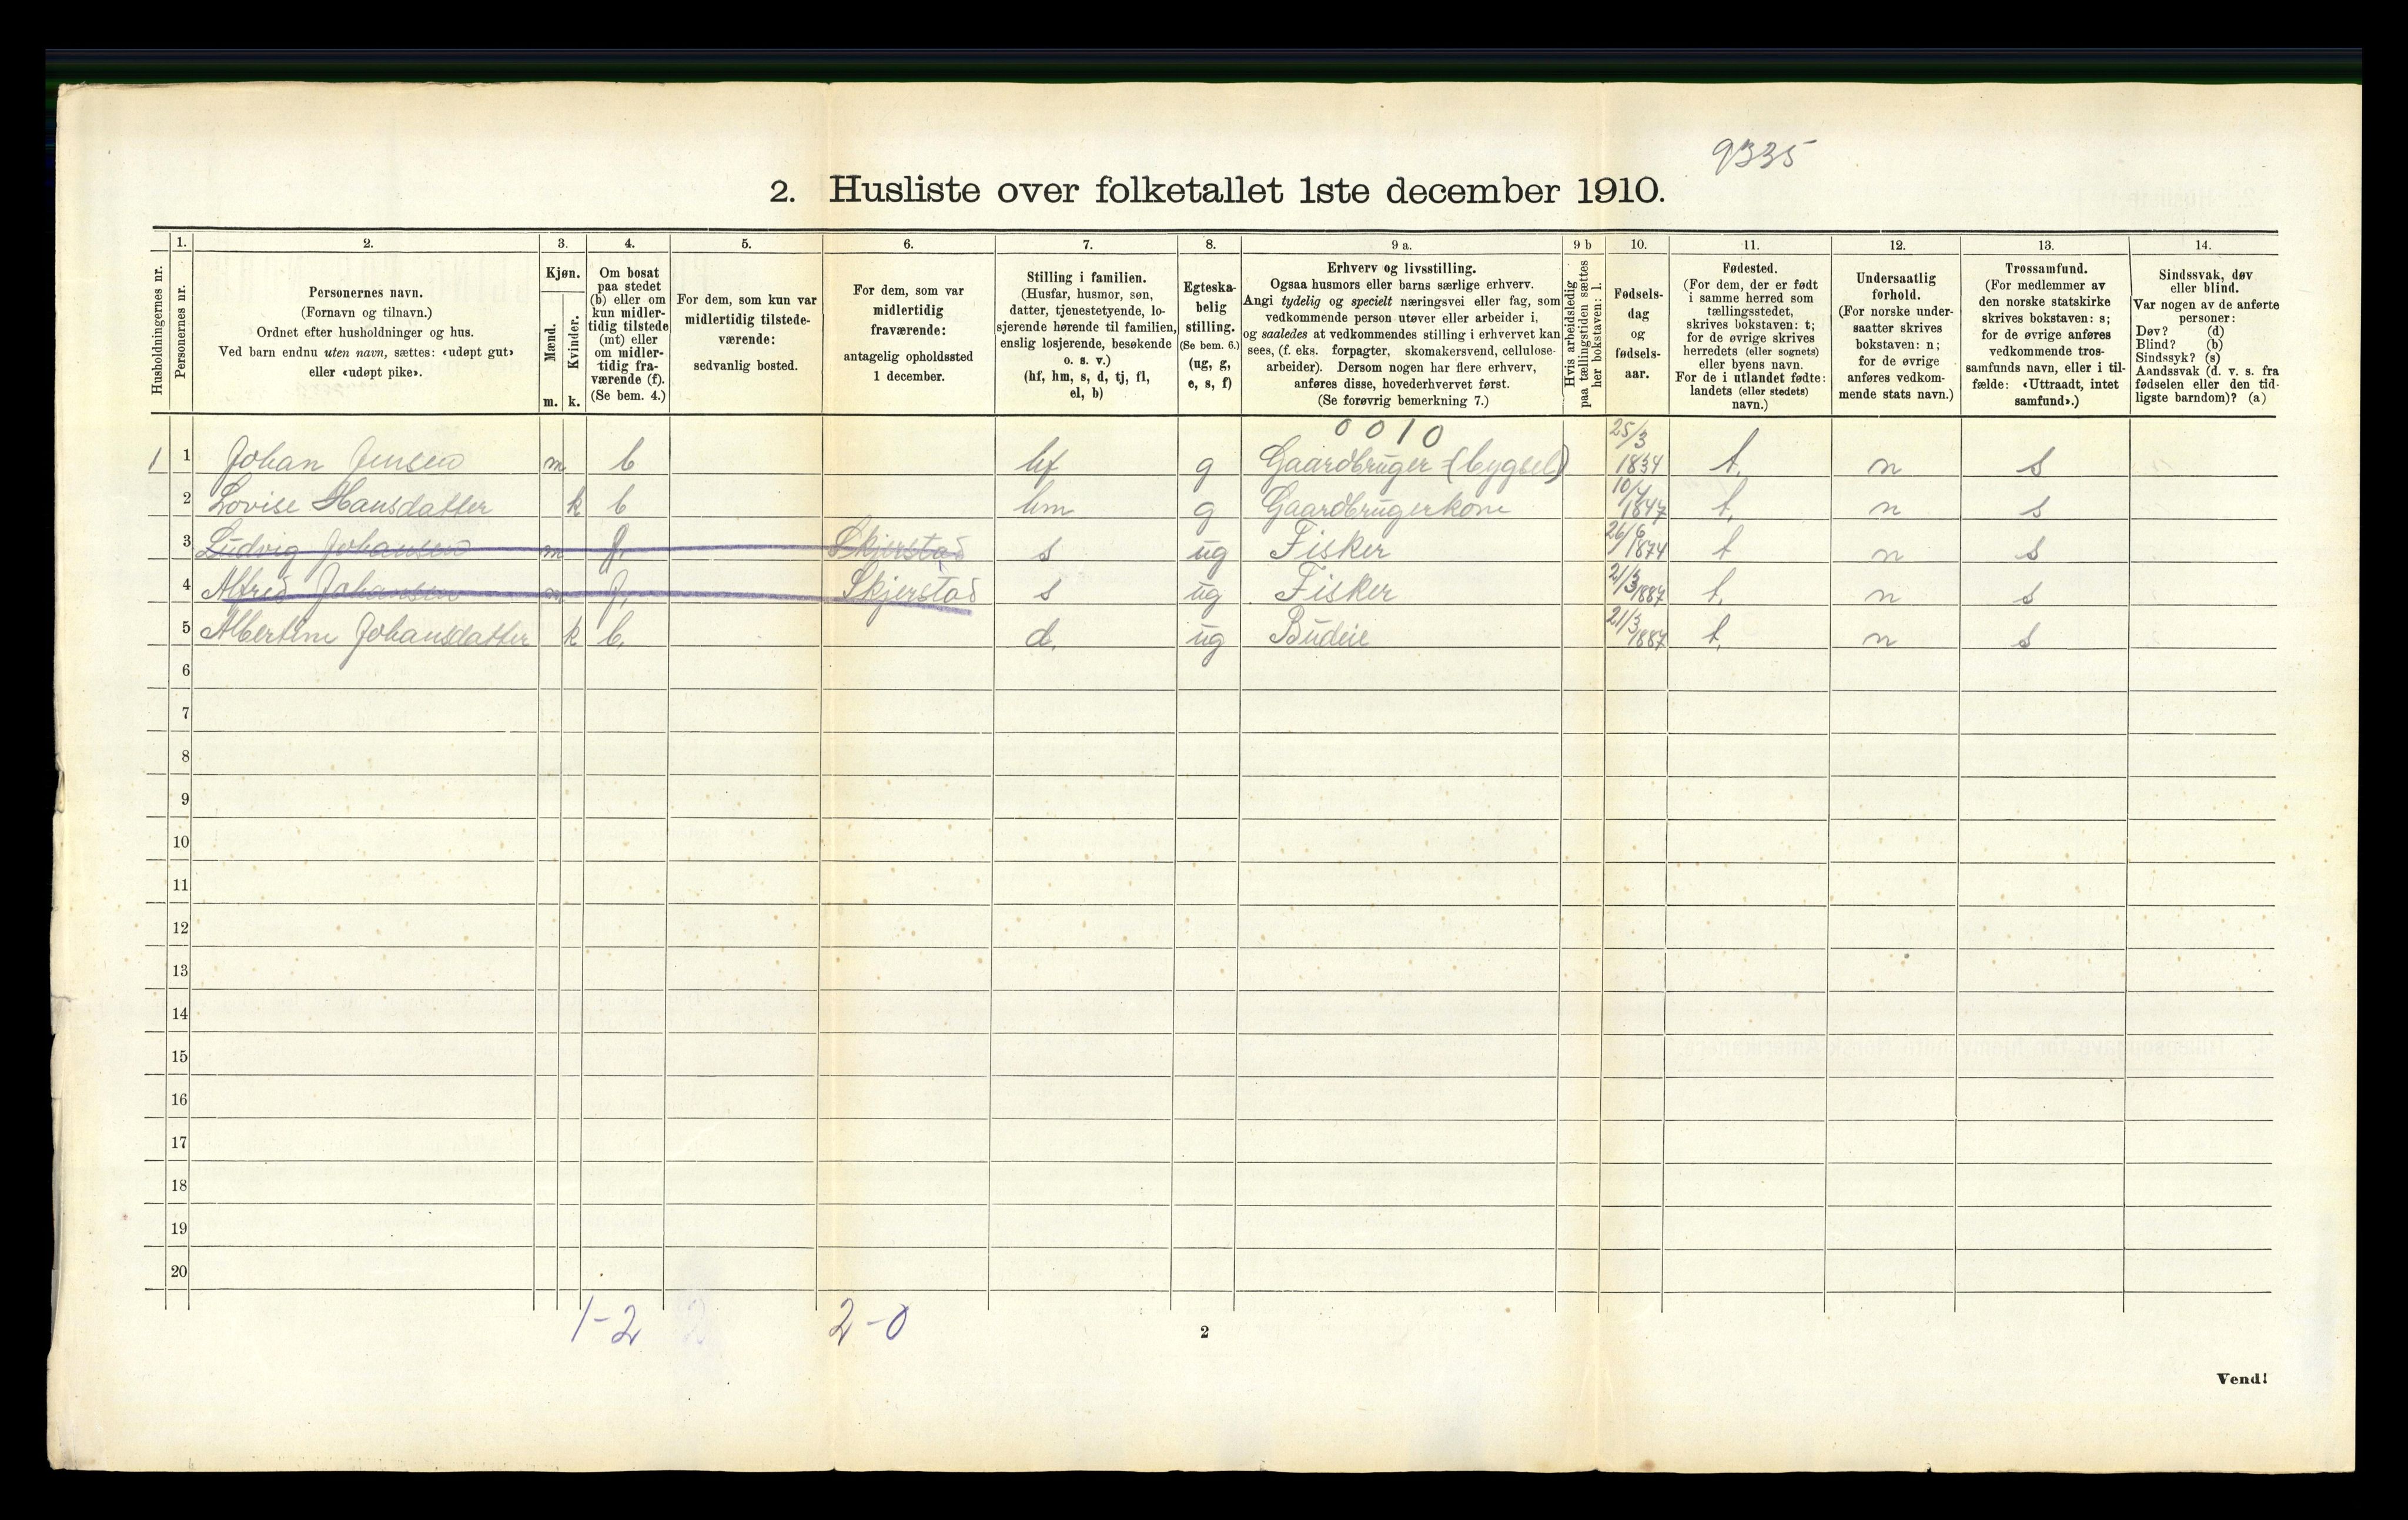 9335
2. Husliste over folketallet 1ste december 1910.
Husholdningernes nr.
1.
Personernes nr.
2.
Personernes navn.
(Fornavn og tilnavn.)
Ordnet efter husholdninger og hus.
Ved barn endnu uten navn, sættes: «udøpt gut»
eller «udøpt pike».
3.
Kjøn.
Mænd.
Kvinder.
m. k.
4.
Om bosat
paa stedet
(b) eller om
kun midler-
tidig tilstede
(mt) eller
om midler-
tidig fra-
værende (f).
(Se bem. 4.)
5.
For dem, som kun var
midlertidig tilstede-
værende:
sedvanlig bosted.
6.
For dem, som var
midlertidig
fraværende:
antagelig opholdssted
1 december.
7.
Stilling i familien.
(Husfar, husmor, søn,
datter, tjenestetyende, lo-
sjerende hørende til familien,
enslig losjerende, besøkende
o. s. v.)
(hf, hm, s, d, tj, fl,
el, b)
8.
Egteska-
belig
stilling.
(Se bem. 6.)
(ug, g,
e, s, f)
9 a.
Erhverv og livsstilling.
Ogsaa husmors eller barns særlige erhverv.
Angi tydelig og specielt næringsvei eller fag, som
vedkommende person utøver eller arbeider i,
og saaledes at vedkommendes stilling i erhvervet kan
sees, (f. eks. forpagter, skomakersvend, cellulose-
arbeider). Dersom nogen har flere erhverv,
anføres disse, hovederhvervet først.
(Se forøvrig bemerkning 7.)
9 b
Hvis arbeidsledig
paa tællingstiden sættes
her bokstaven: l.
10.
Fødsels-
dag
og
fødsels-
aar.
11.
Fødested.
(For dem, der er født
i samme herred som
tællingsstedet,
skrives bokstaven: t;
for de øvrige skrives
herredets (eller sognets)
eller byens navn.
For de i utlandet fødte:
landets (eller stedets)
navn.)
12.
Undersaatlig
forhold.
(For norske under-
saatter skrives
bokstaven: n;
for de øvrige
anføres vedkom-
mende stats navn.)
13.
Trossamfund.
(For medlemmer av
den norske statskirke
skrives bokstaven: s;
for de øvrige anføres
vedkommende tros-
samfunds navn, eller i til-
fælde: «Uttraadt, intet
samfund».)
14.
Sindssvak, døv
eller blind.
Var nogen av de anførte
personer:
Døv? (d)
Blind? (b)
Sindssyk? (s)
Aandssvak (d. v. s. fra
fødselen eller den tid-
ligste barndom)? (a)
0 0 1 0
1 1 Johan Jensen m b hf g Gaardbruger (bygsel) 25/3 1834 t. n s
2 Lovise Hansdatter k b hm g Gaardbrugerkone 10/4 1847 t. n s
3 Ludvig Johansen m f. Skjerstad s ug Fisker 26/6 1874 t n s
4 Alfred Johansen m f. Skjerstad s ug Fisker 21/3 1887 t. n s
5 Albertine Johansdatter k b. d. ug Budeie 21/3 1887 t. n s
6
7
8
9
10
11
12
13
14
15
16
17
18
19
20
1-2 2-0
2
Vend!